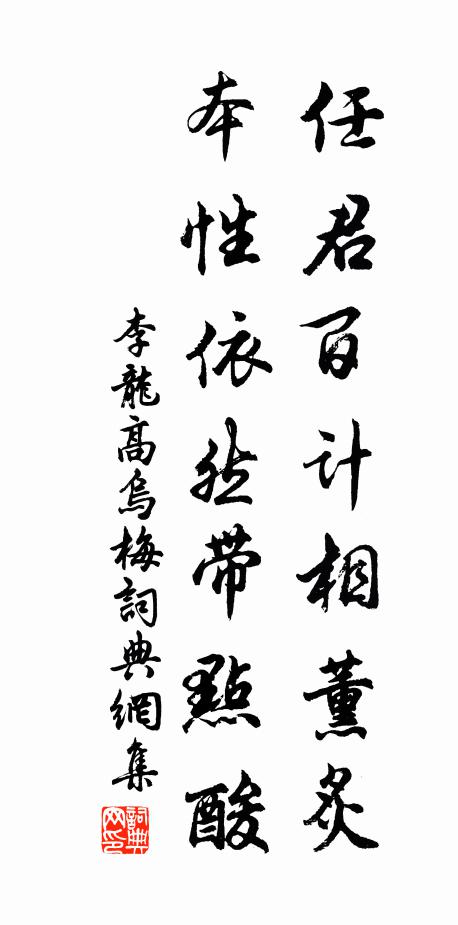 任君百计相薰炙
本性依然带點酸
李龍高烏梅詞典網集
詞典网印